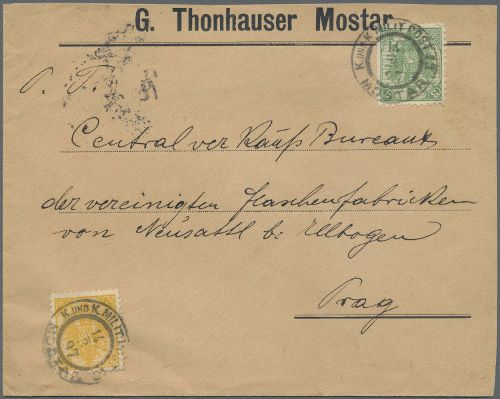 G. Thonhauser Mostar
K. UND K. MILIT. POST
MOSTAR
P. T.
Central ver Kaufs Bureaux
der vereinigten Flaschenfabricken
von Neusattl b. Ellbogen
Prag
K. UND K. MILIT.